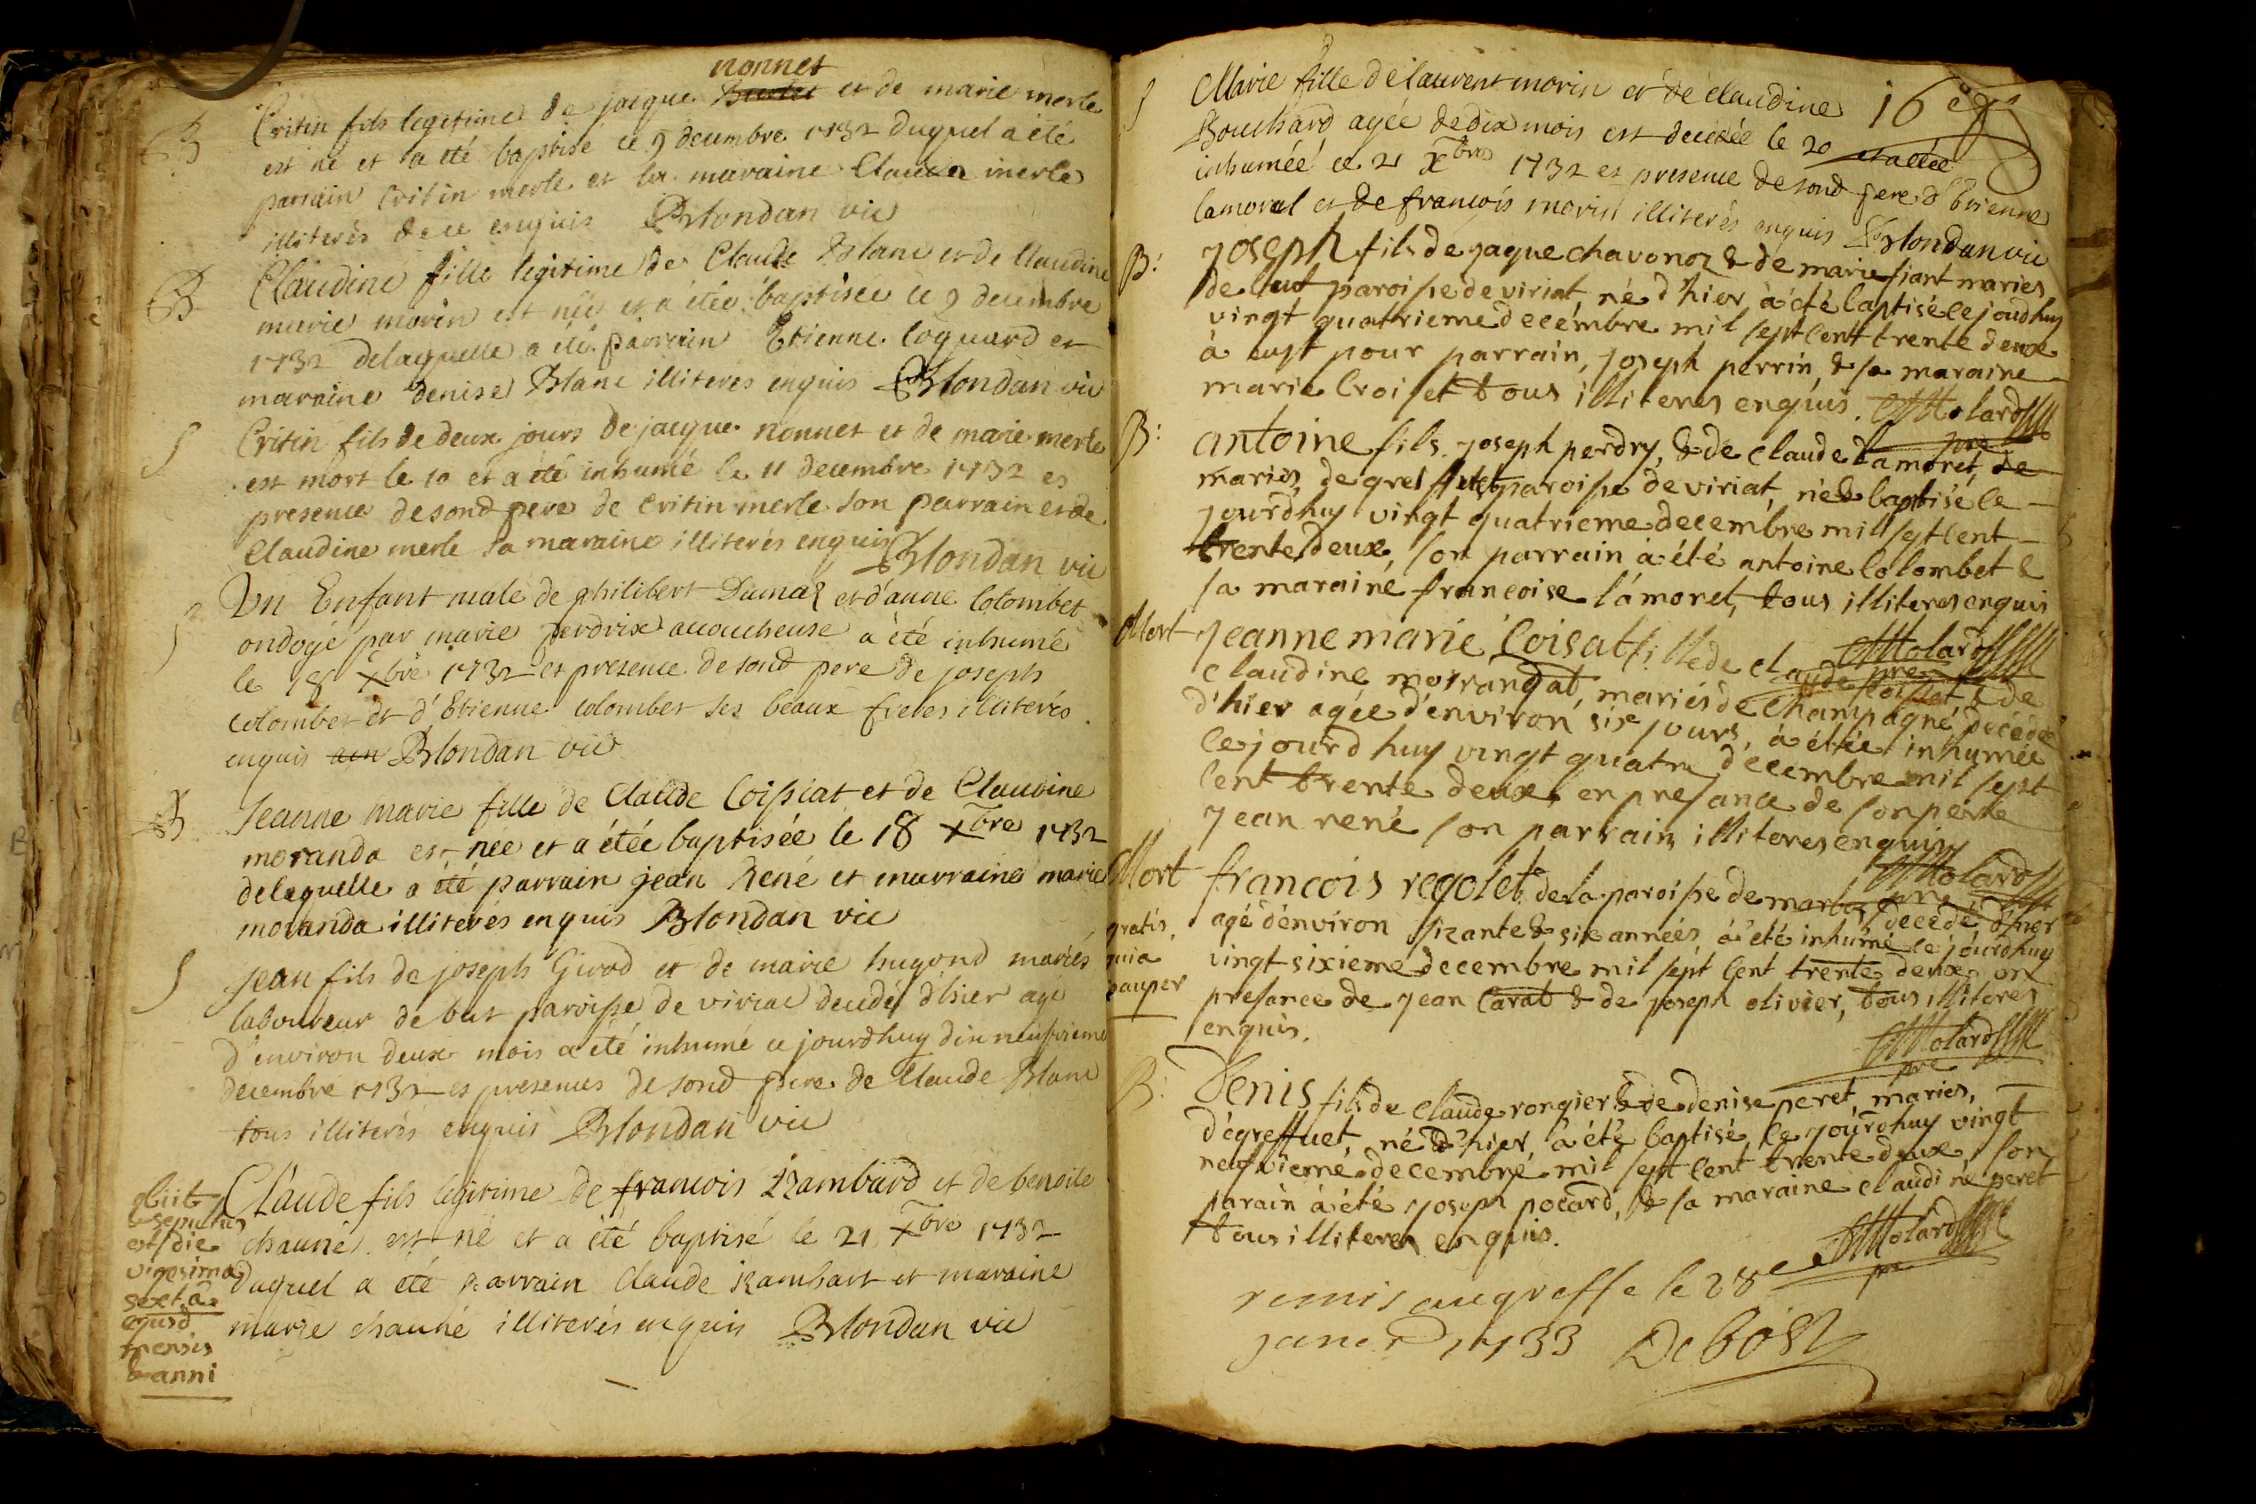 nonnet
B Critin fils legitime de jacque et de marie merle
est né et a été baptisé ce 9 decembre 1732 duquel a été
parrain Critin merle et la maraine Clauda merle
illiterés de ce enquis Blondan vic
B Claudine fille legitime de Claude Blanc et de Claudine
marie morin est née et a étée baptisée ce 9 decembre
1732 delaquelle a été parrain Etienne Coquard et
maraine denise Blanc illiteres enquis Blondan vic
S Critin fils de deux jours de jacque nonnet et de marie merle
est mort le 10 et a été inhumé le 11 decembre 1732 es
presence de sond pere de Critin merle son parrain et de
Claudine merle sa maraine illiterés enquis Blondan vic
S Un Enfant male de philibert Dumaz et d'anne Colombet
ondoyé par marie perdrix acoucheuse a été inhumé
le 18 Xbre 1732 es presence de sond pere de joseph
colombet et d'Etienne colombet ses beaux freres illiterés
enquis Blondan vic
B Jeanne marie fille de Claude Coissiat et de Claudine
moranda est née et a étée baptisée le 18 Xbre 1732
delaquelle a été parrain jean René et marraine marie
moranda illiterés enquis Blondan vic
S jean fils de joseph Girod et de marie hugond mariés
laboureur de but paroisse de viriac decedé d'hier agé
d'environ deux mois a été inhumé ce jourdhuy dix neufvieme
decembre 1732 es presences de sond pere de Claude Blanc
tous illiterés enquis Blondan vic
Claude fils legitime de francois Rambard et de benoite
chauné est né et a été baptisé le 21 Xbre 1732
duquel a été parrain Claude Rambart et maraine
marie chauné illiterés enquis Blondan vic
obiit
& sepultus
est die
vigesima
sexta
ejusd
mensis
& anni
16
S Marie fille de laurent morin et de claudine
Bouchard agée de dix mois est decedée le 20
inhumée ce 21 Xbre 1732 es presence de sond pere d'Etienne
lamoral et de francois morin illiterés enquis Blondan vic
B: joseph fils de jaque chavonoz & de marie fiant maries
de but paroisse de viriat, né d'hier, à été baptisé cejourdhuy
vingt quatrieme decémbre mil sept cent trente deux
à eust pour parrain, joseph perrin, & sa maraine
marie Croiset tous illiteres enquis. Molard
pre
B: antoine fils joseph perdry, & de claude l'amoret,
mariés, de paroisse de viriat, né & baptisé ce
jourdhuy vingt quatrieme decembre mil sept cent
trente deux, son parrain à été antoine Colombet &
sa marainé francoise l'ámoret, tous illiteres enquis
Molard
pre
Mort jeanne marie Coisat fille de claude Coissat, & de
claudine morandat, mariés de Champagne, decedée
d'hier agée d'environ six jours, à étée inhumée
cejourdhuy vingt quatre decembre mil sept
cent trente deux, en presance de son pere &
jean rené son parrain illiteres enquis
Molard
pre
Mort francois regolet de la paroisse de marboz decedé d'hier
gratis agé d'énviron sixante & six années, á été inhumé ce jourdhuy
quia vingt sixieme decembre mil sépt Cent trente deux, en
pauper presance de jean Carat & de joseph olivier, tous illiteres
enquis.
Molard
pre
B: Denis fils de claude rongier & de denise peret, maries,
d'égreffuet, né d'hier, à été baptisé, ce jourdhuy vingt
neufviemé decembre mil sept cent trente deux, son
parain à été joseph pocard, & sa maraine claudiné peret
tous illiteres enquis.
Molard
pre
remis au greffe le 28e
janer 1733 Debost